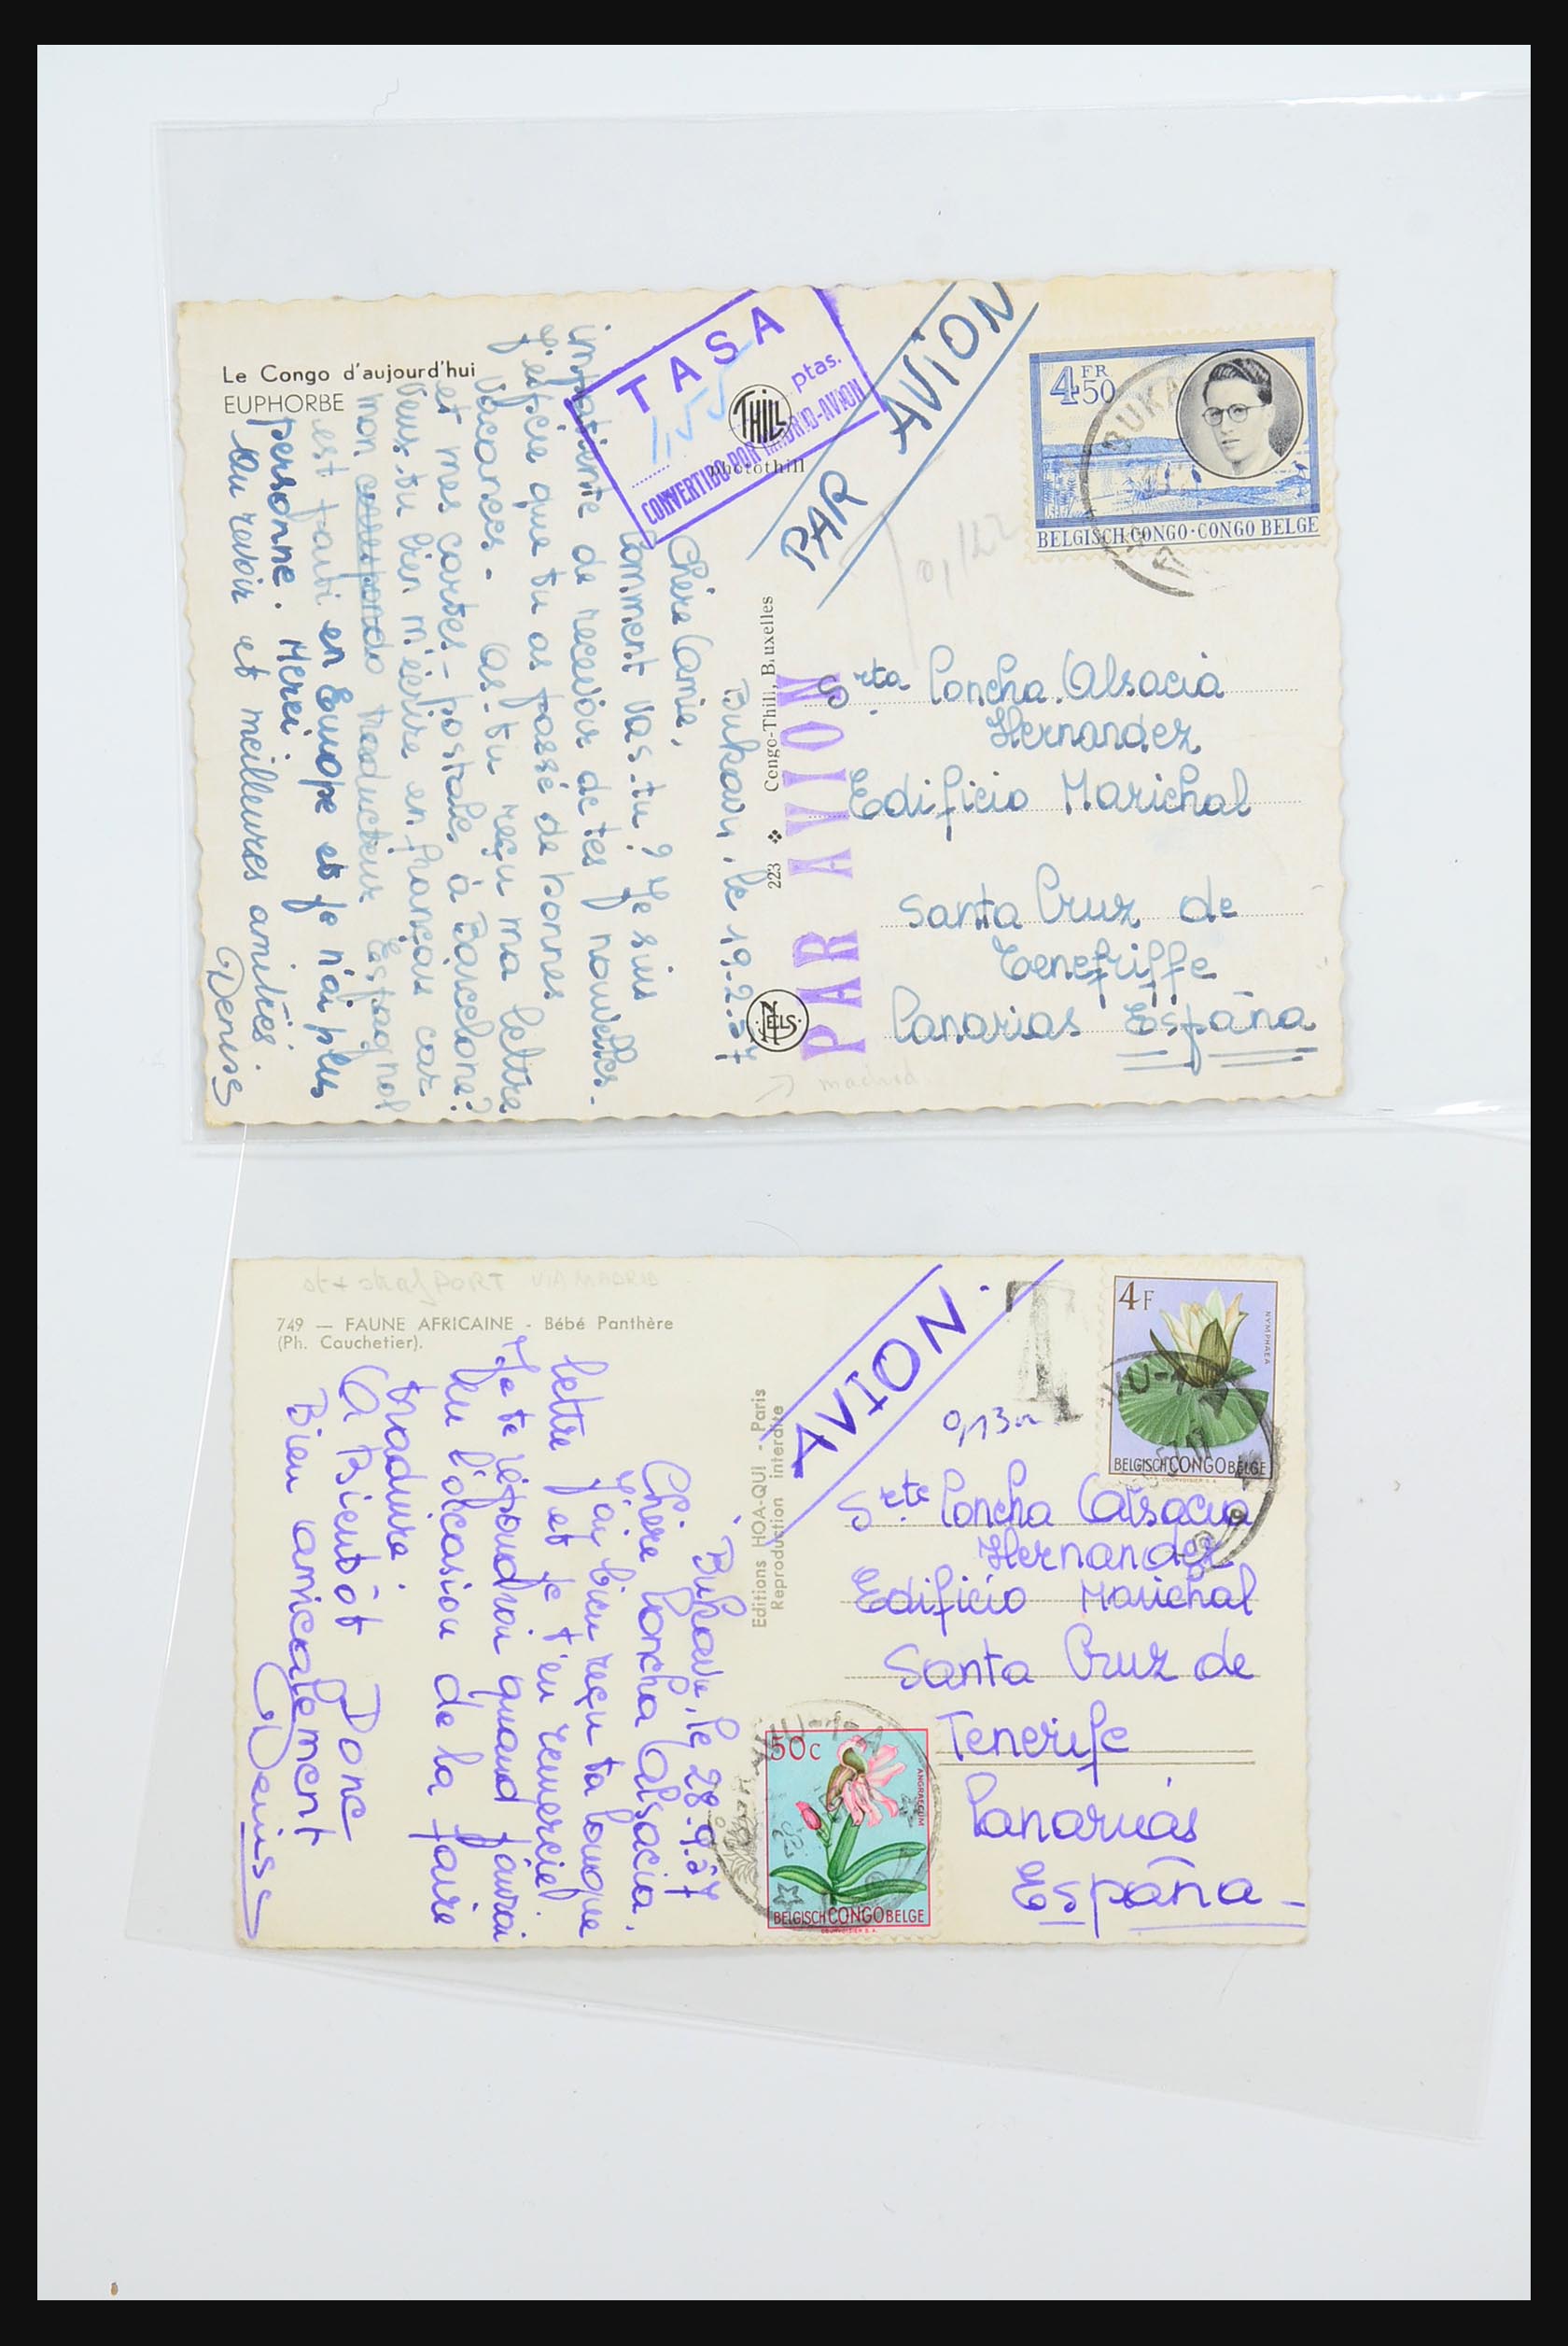 Le Congo d'aujourd'hui
EUPHORBE
TASA
1,55
ptas.
CONVERTIDO-BON MADRID-AVION
THILL
photothill
PAR AVION
4 FR 50
BUKA
BELGISCH CONGO · CONGO BELGE
0,122
Bukavu, le 19-2-57
Chère Amie,
Comment vas-tu? Je suis
impatiente de recevoir de tes nouvelles.
J'espère que tu as passé de bonnes
vacances. As-tu reçu ma lettre
et mes cartes-postales à Barcelone?
Veux-tu bien m'écrire en français car
mon correspondo traducteur Espagnol
est parti en Europe et je n'ai plus
personne. Merci.
Au revoir et meilleures amitiés.
Deniss
223 Congo-Thill, Bruxelles
NELS
PAR AVION
Srta Concha Alsacia
Hernandez
Edificio Marichal
Santa Cruz de
Teneriffe
Canarias España
madrid
VIA MADRID
749 — FAUNE AFRICAINE - Bébé Panthère
(Ph. Cauchetier).
AVION
T
0,13
4F
NYMPHAEA
BELGISCH CONGO BELGE
COURVOISIER S.A.
Bukavu, le 28-9-57
Chère Concha Alsacia,
J'ai bien reçu ta longue
lettre et je t'en remercie!
Je te répondrai quand j'aurai
eu l'occasion de la faire
traduire.
A Bientôt Donc
Bien amicalement
Deniss
Editions HOA-QUI - Paris
Reproduction interdite
Srte Concha Alsacia
Hernandez
Edificio Marichal
Santa Cruz de
Tenerife
Canarias
España
50c
ANGRAECUM
BELGISCH CONGO BELGE
COURVOISIER S.A.